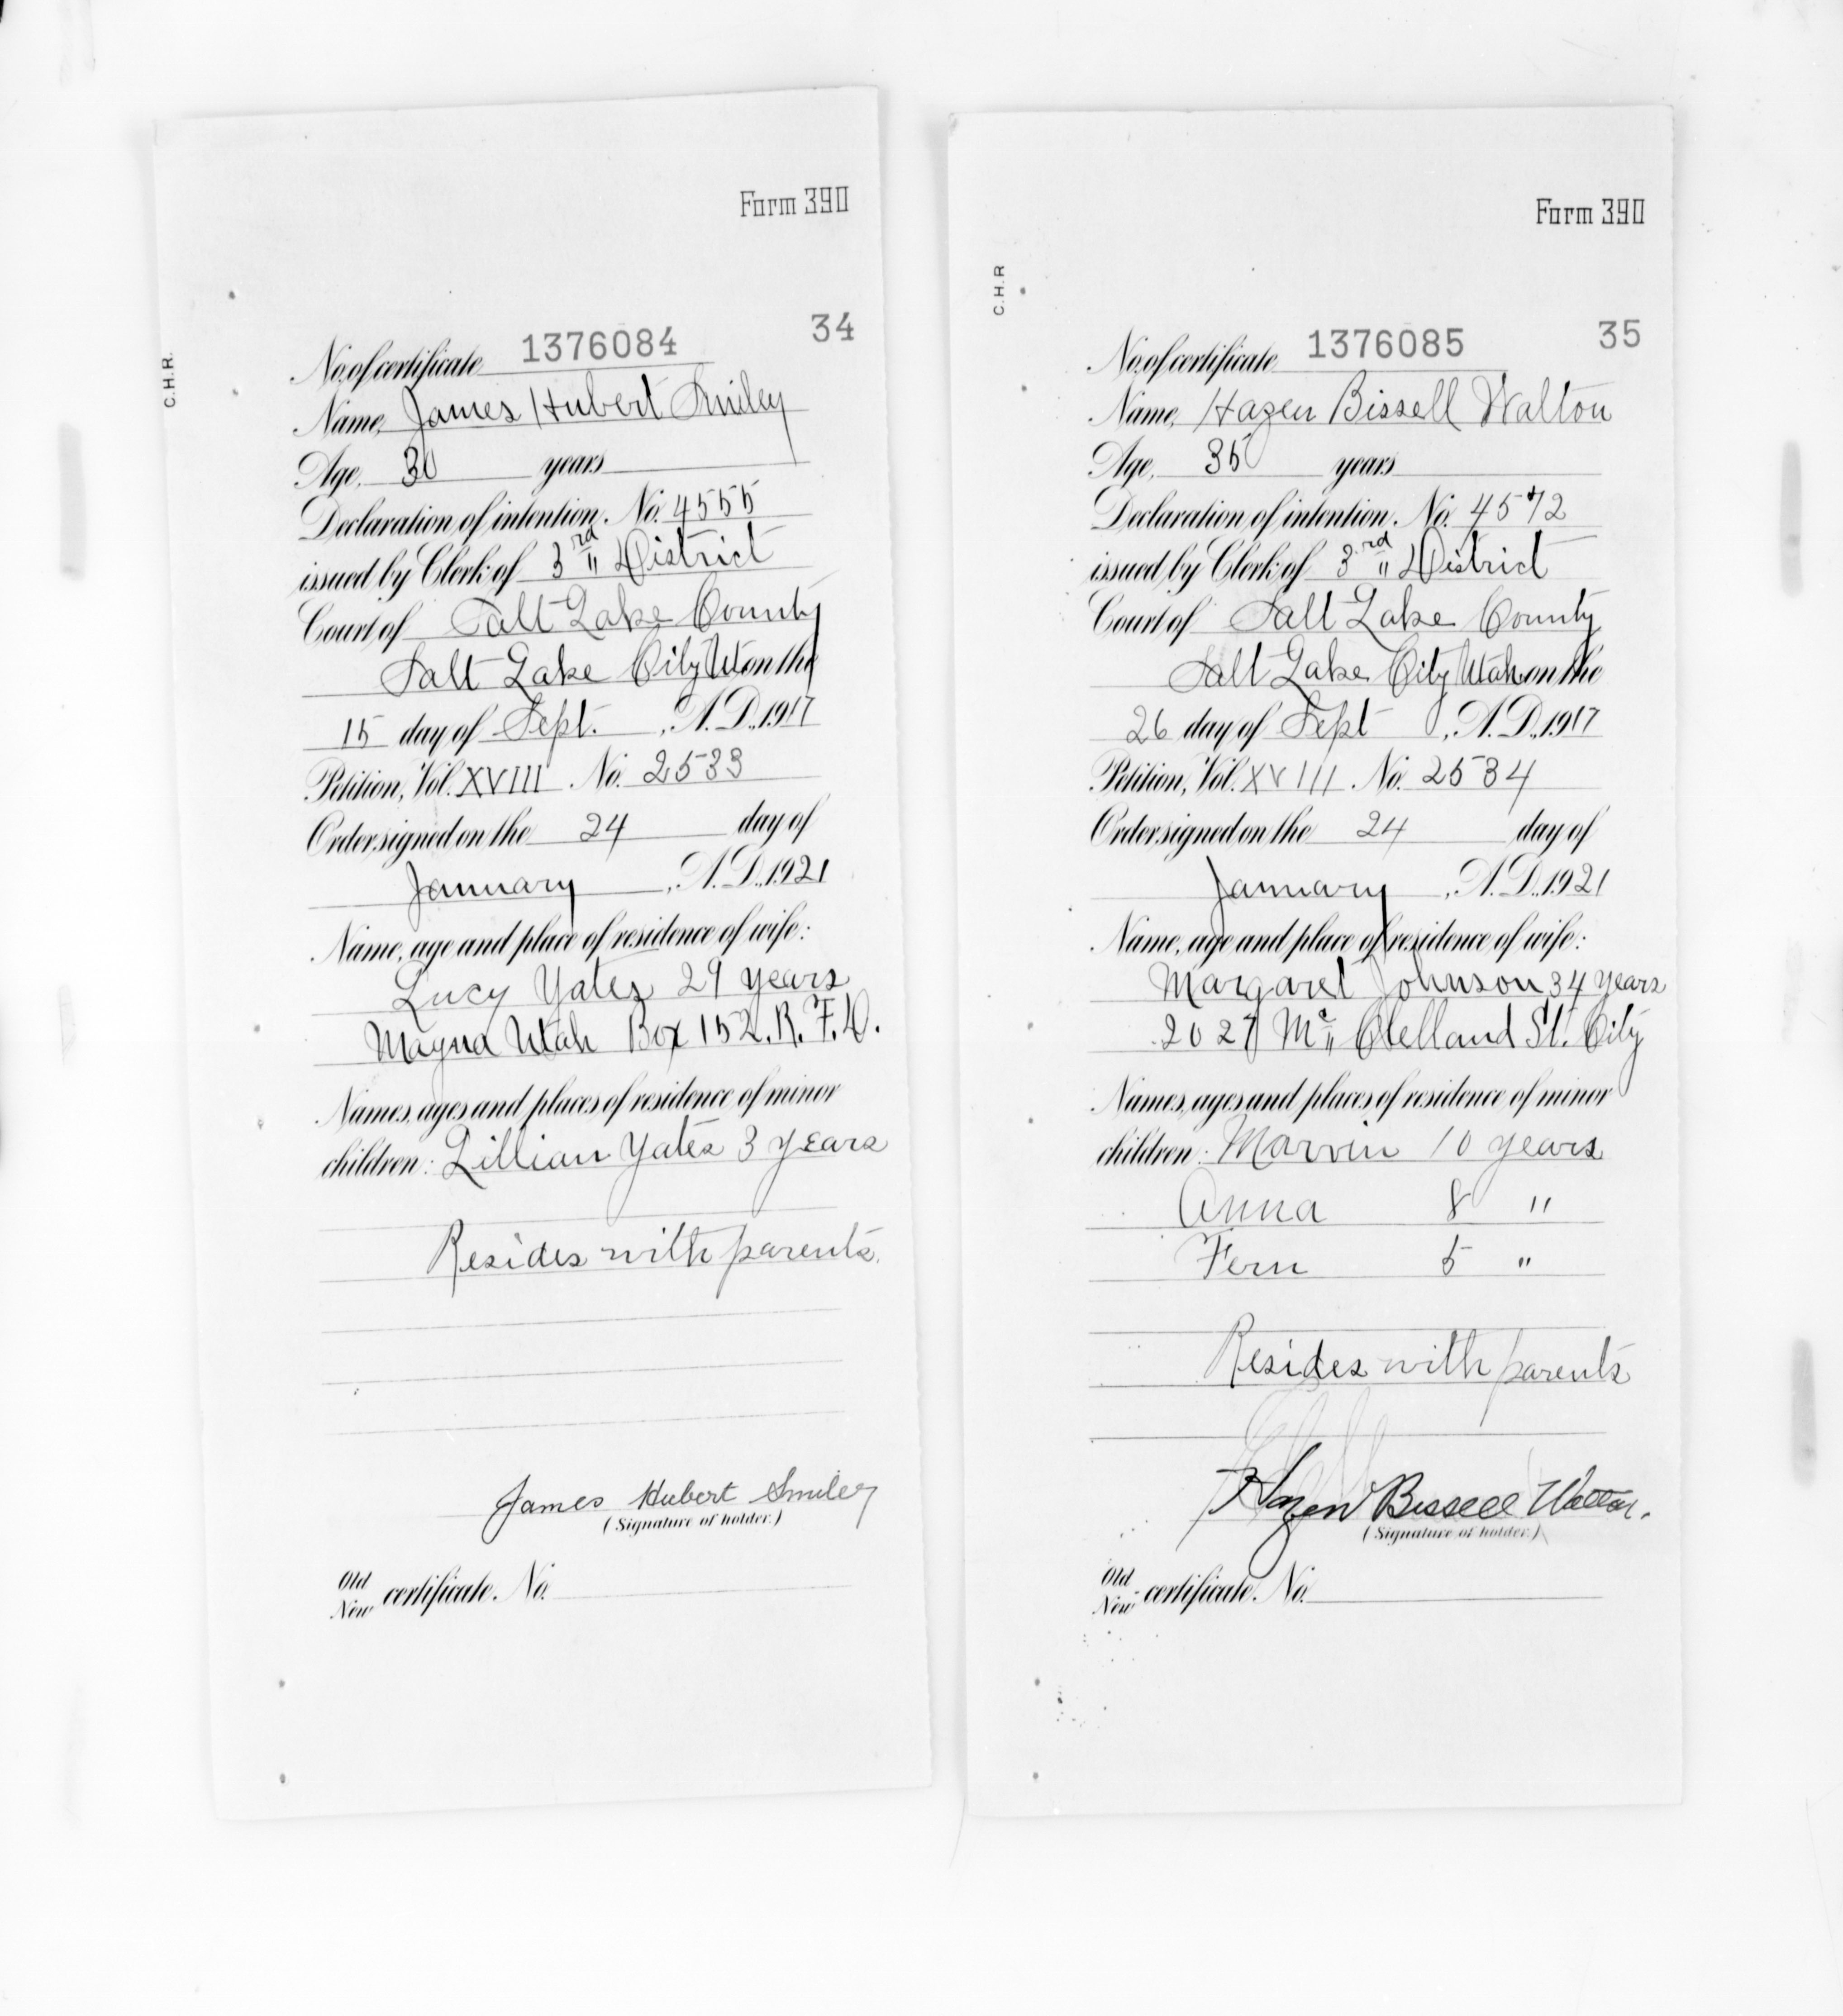 Form 390
C.H.R.
34
No. of certificate 1376084
Name, James Hubert Smiley
Age, 30 years
Declaration of intention. No. 4555
issued by Clerk of 3rd " District
Court of Salt Lake County
Salt Lake City Ut on the
15 day of Sept. , A.D., 1917
Petition, Vol. XVIII No. 2533
Order signed on the 24 day of
January , A.D., 1921
Name, age and place of residence of wife:
Lucy Yates 29 years
Magna Utah Box 152. R. F. D.
Names, ages and places of residence of minor
children: Lillian Yates 3 years
Resides with parents.
James Hubert Smiley
(Signature of holder.)
Old
New certificate. No.
Form 390
C.H.R
35
No. of certificate 1376085
Name, Hazen Bissell Walton
Age, 35 years
Declaration of intention. No. 4572
issued by Clerk of 3rd " District
Court of Salt Lake County
Salt Lake City Utah on the
26 day of Sept , A.D., 1917
Petition, Vol. XVIII No. 2534
Order signed on the 24 day of
January , A.D., 1921
Name, age and place of residence of wife:
Margaret Johnson 34 years
2027 Mc " Clelland St. City
Names, ages and places of residence of minor
children: Marvin 10 years
Anna 8 "
Fern 5 "
Resides with parents
Hazen Bissell Walton.
(Signature of holder.)
Old
New certificate. No.